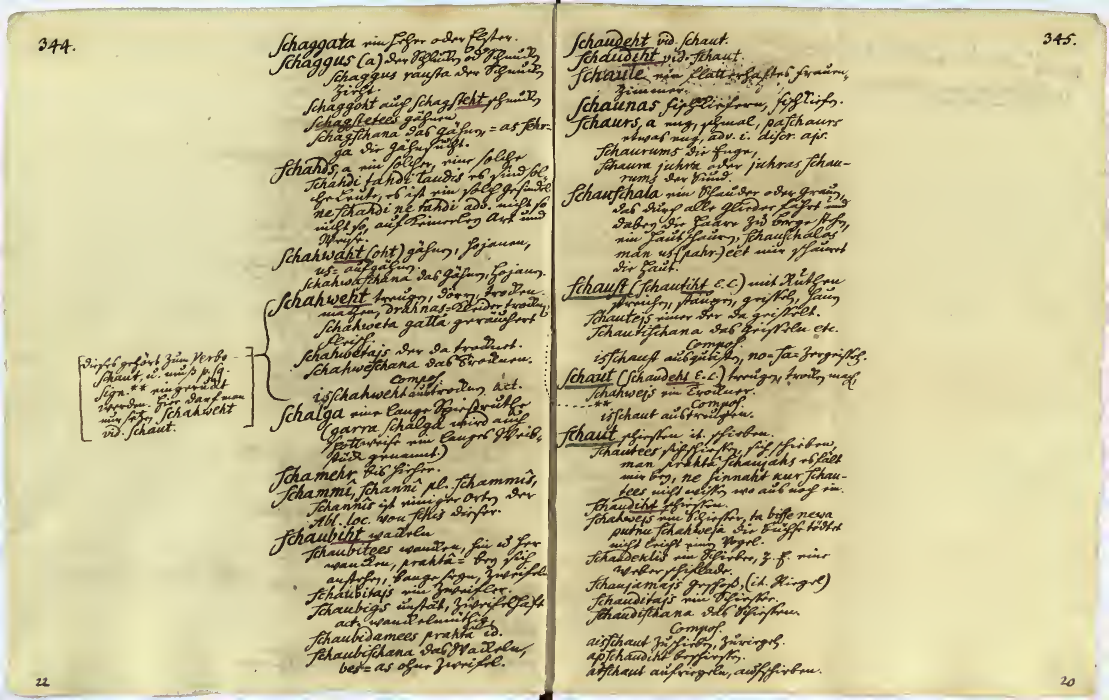 344.
Schaggata ein Heher oder Elster.
Schaggus (a) der Schluck od Schnuck
Schaggus rausta der Schnuck
zieht.
Schaggoht auch Schagsteht schnucken
Schagstetees gähnen
Schagschana das Gähnen, = as Sehr-
ga die Gähnsucht.
Schahds, a ein solcher, eine solche
Schahdi tahdi laudis es sind sol-
che Leute, es ist ein solch Gesindel
ne schahdi ne tahdi adv. nicht so
nicht so, auf keinerley Art und
Weise.
Schahwaht (oht) gähnen, hojanen,
us= aufgähnen.
Schahwaschana das Gähnen, Hojanen.
Schahweht treugen, dörren, trocken
machen, drahnas= Kleider trocken,
Schahweta gaľľa geräuchert
Fleisch.
Schahwetajs der da trocknet.
Schahweschana das Trocknen.
Compos.
isschahweht austrocknen act.
Schalga eine lange Spiesruthe
(garra schalga wird auch
spottweise ein langes Weib-
stück genannt.)
Schamehr bis hieher.
Schammî, schannî pl. schammîs,
schannîs ist einiger Orten der
Abl. loc. von schis dieser.
Schaubiht wackeln
Schaubitees wanken, hin u her
wanken, prahtâ= bey sich
anstehen, bange seyn, zweifeln
Schaubitajs ein Zweifler.
Schaubigs unstät, zweifelhaft
act. wankelmüthig
Schaubidamees prahtâ id.
Schaubischana das Wackeln,
bes= as ohne Zweifel.
dieses gehört zum Verbo
schaut, u. muß p. sq.
sign. ** eingerückt
werden. Hier darf man
nur setzen Schahweht
vid. schaut.
22
345.
Schaudeht vid. schaut.
Schaudiht vid. schaut.
Schaule ein flatterhaftes Frauen-
zimmer.
Schaunas Fischkiefern, Fischkiefen.
Schaurs, a eng, schmal, paschaurs
etwas eng, adv. i. discr. ajs.
Schaurums die Enge,
Schaura juhra oder juhras schau-
rums der Sund.
Schauschala ein Schauder oder Graun,
das durch alle Glieder fährt und
dabey die Haare zu Berge stehen,
ein Hautschauer, Schauschalas
man us (pahr) eet mir schauert
die Haut.
Schaust (schautiht E. L.) mit Ruthen
streichen, stäupen, geisseln, hauen
Schautejs einer der da geisselt.
Schautischana das Geisseln etc.
Compos.
isschaust ausgeisseln, no= sa= zergeisseln.
Schaut (schaudeht E. L.) treugen, trocken machen,
Schahwejs ein Trockner.
**
Compos.
isschaut austreugen.
Schaut schiessen it. schieben.
Schautees sich schiessen, sich schieben,
man prahtâ schaujahs es fält
mir bey, ne sinnaht kur schau-
tees nicht wissen wo aus noch in.
Schaudiht schiessen.
Schahwejs ein Schiesser, ta bisse newa
putnu schahweja die Büchse tödtet
nicht leicht einen Vogel.
Schaudeklis ein Schieber, z. E. eine
Weberschießlade.
Schaujamajs Geschoß, (it. Riegel)
Schauditajs ein Schiesser.
Schaudischana das Schiessen.
Compos.
aisschaut zuschieben, zuriegeln.
apschaudiht beschiessen.
atschaut aufriegeln, aufschieben.
20